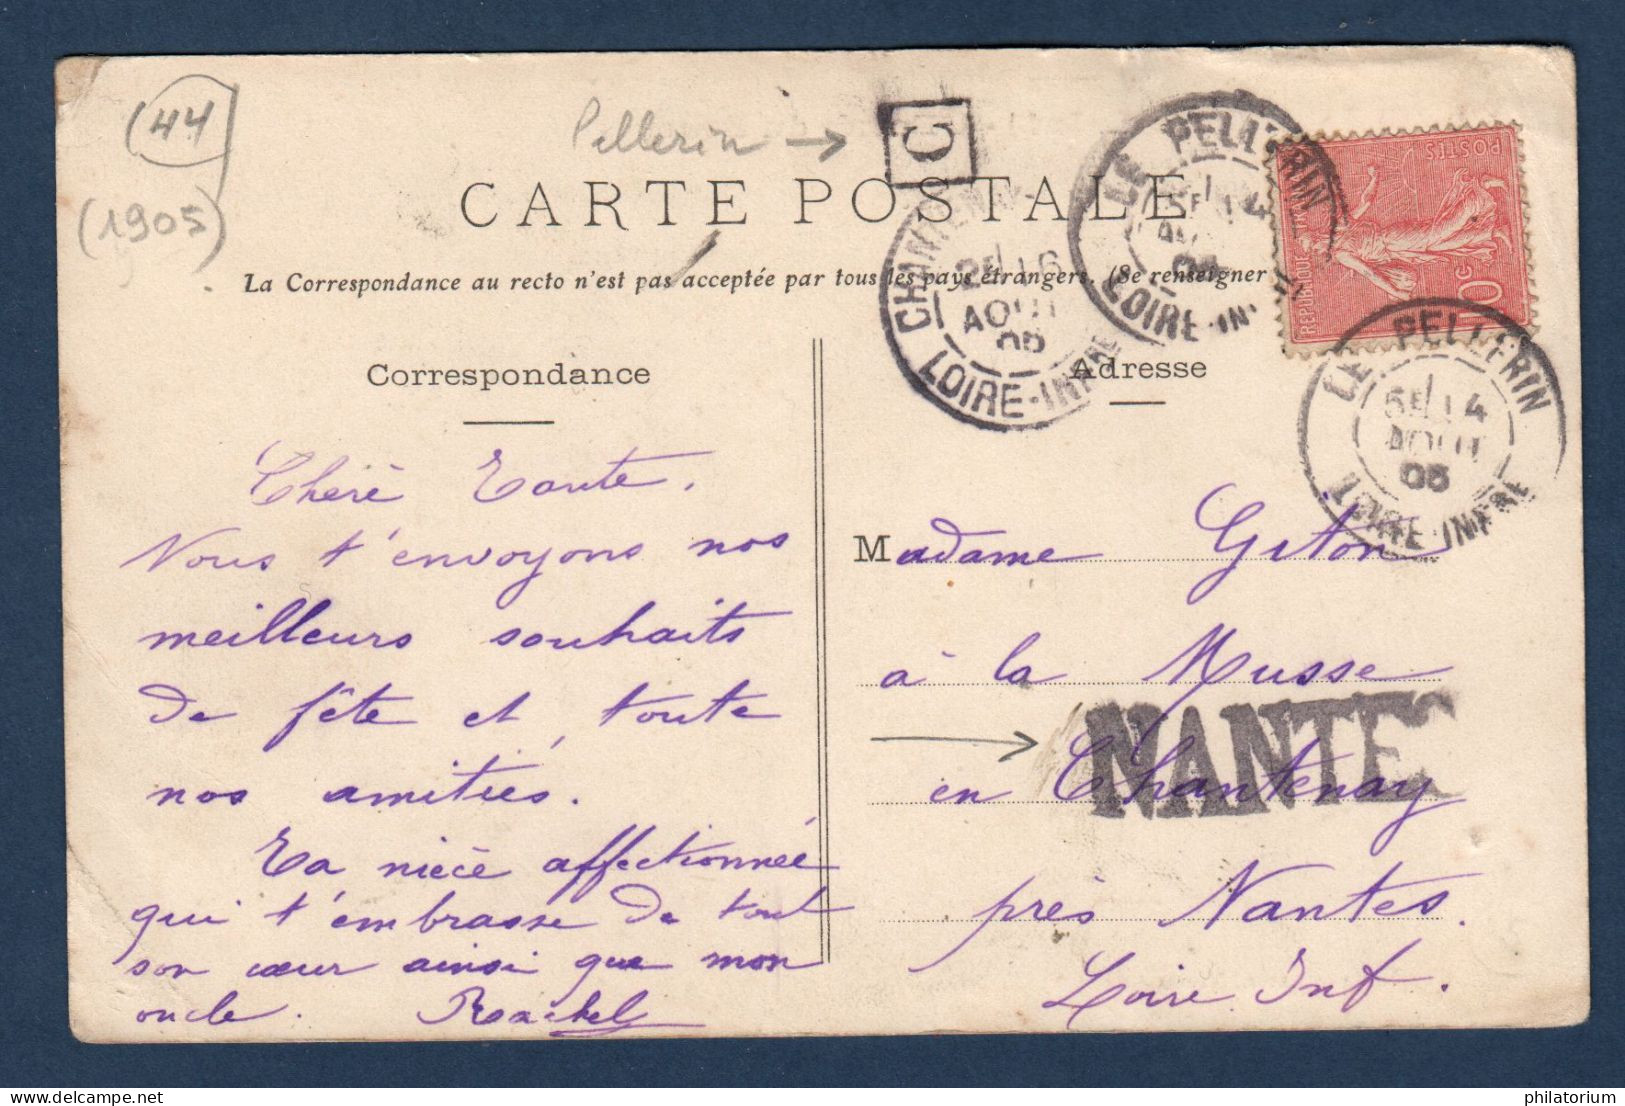 (44)
(1905)
Pellerin →
C
CARTE POSTALE
La Correspondance au recto n'est pas acceptée par tous les pays étrangers. (Se renseigner
Correspondance
Adresse
CHANTENAY
2E 16
AOUT
05
LOIRE-INFRE
LE PELLERIN
5E 14
AOUT
05
LOIRE-INFRE
LE PELLERIN
5E 14
AOUT
05
LOIRE-INFRE
POSTES
REPUBLIQUE
10c
Chère Tante,
Nous t'envoyons nos
meilleurs souhaits
de fête et toute
nos amitiés.
Ta nièce affectionnée
qui t'embrasse de tout
son cœur ainsi que mon
oncle. Rachel
Madame Giton
à la Musse
NANTES
en Chantenay
près Nantes.
Loire Inf.
philatorium